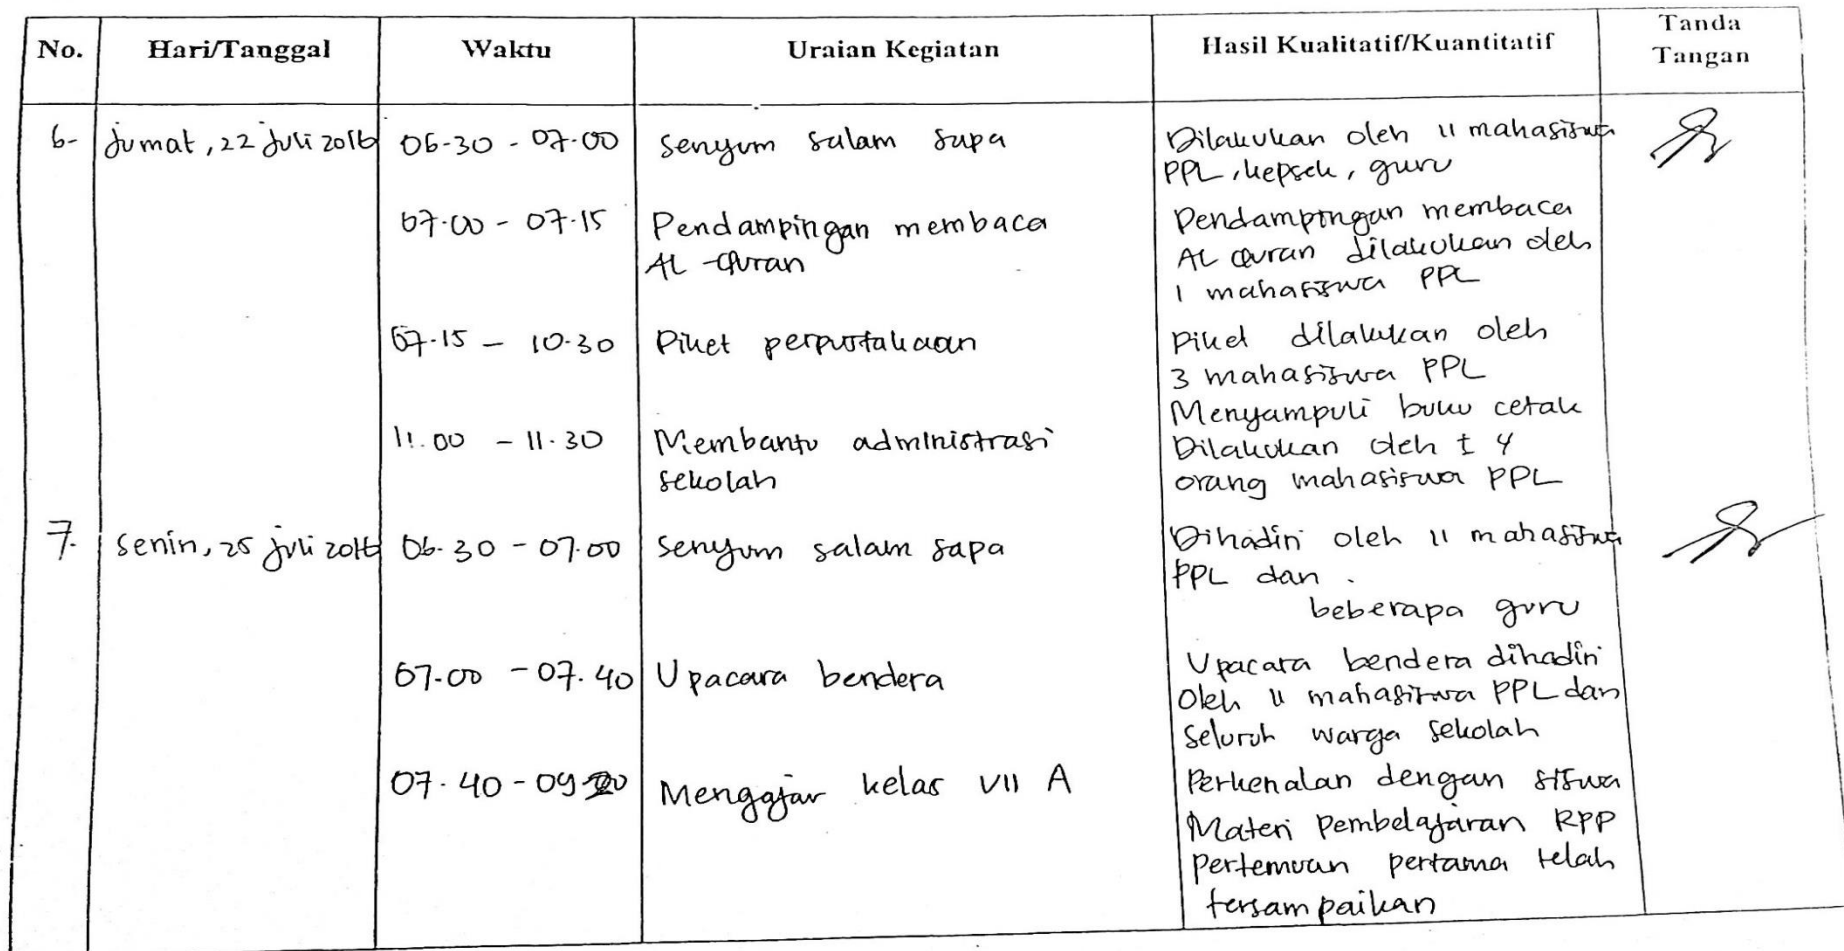 No. Hari/Tanggal Waktu Uraian Kegiatan Hasil Kualitatif/Kuantitatif Tanda
Tangan
6. Jumat, 22 Juli 2016 06.30 - 07.00 Senyum salam sapa Dilakukan oleh 11 mahasiswa
PPL, kepsek, guru
07.00 - 07.15 Pendampingan membaca Pendampingan membaca
AL-Quran AL Quran dilakukan oleh
1 mahasiswa PPL
07.15 - 10.30 Piket perpustakaan Piket dilakukan oleh
3 mahasiswa PPL
Menyampuli buku cetak
11.00 - 11.30 Membantu administrasi Dilakukan oleh ± 4
sekolah orang mahasiswa PPL
7. Senin, 25 Juli 2016 06.30 - 07.00 Senyum salam sapa Dihadiri oleh 11 mahasiswa
PPL dan .
beberapa guru
07.00 - 07.40 Upacara bendera Upacara bendera dihadiri
oleh 11 mahasiswa PPL dan
seluruh warga sekolah
07.40 - 09.20 Mengajar kelas VII A Perkenalan dengan siswa
Materi pembelajaran RPP
pertemuan pertama telah
tersampaikan